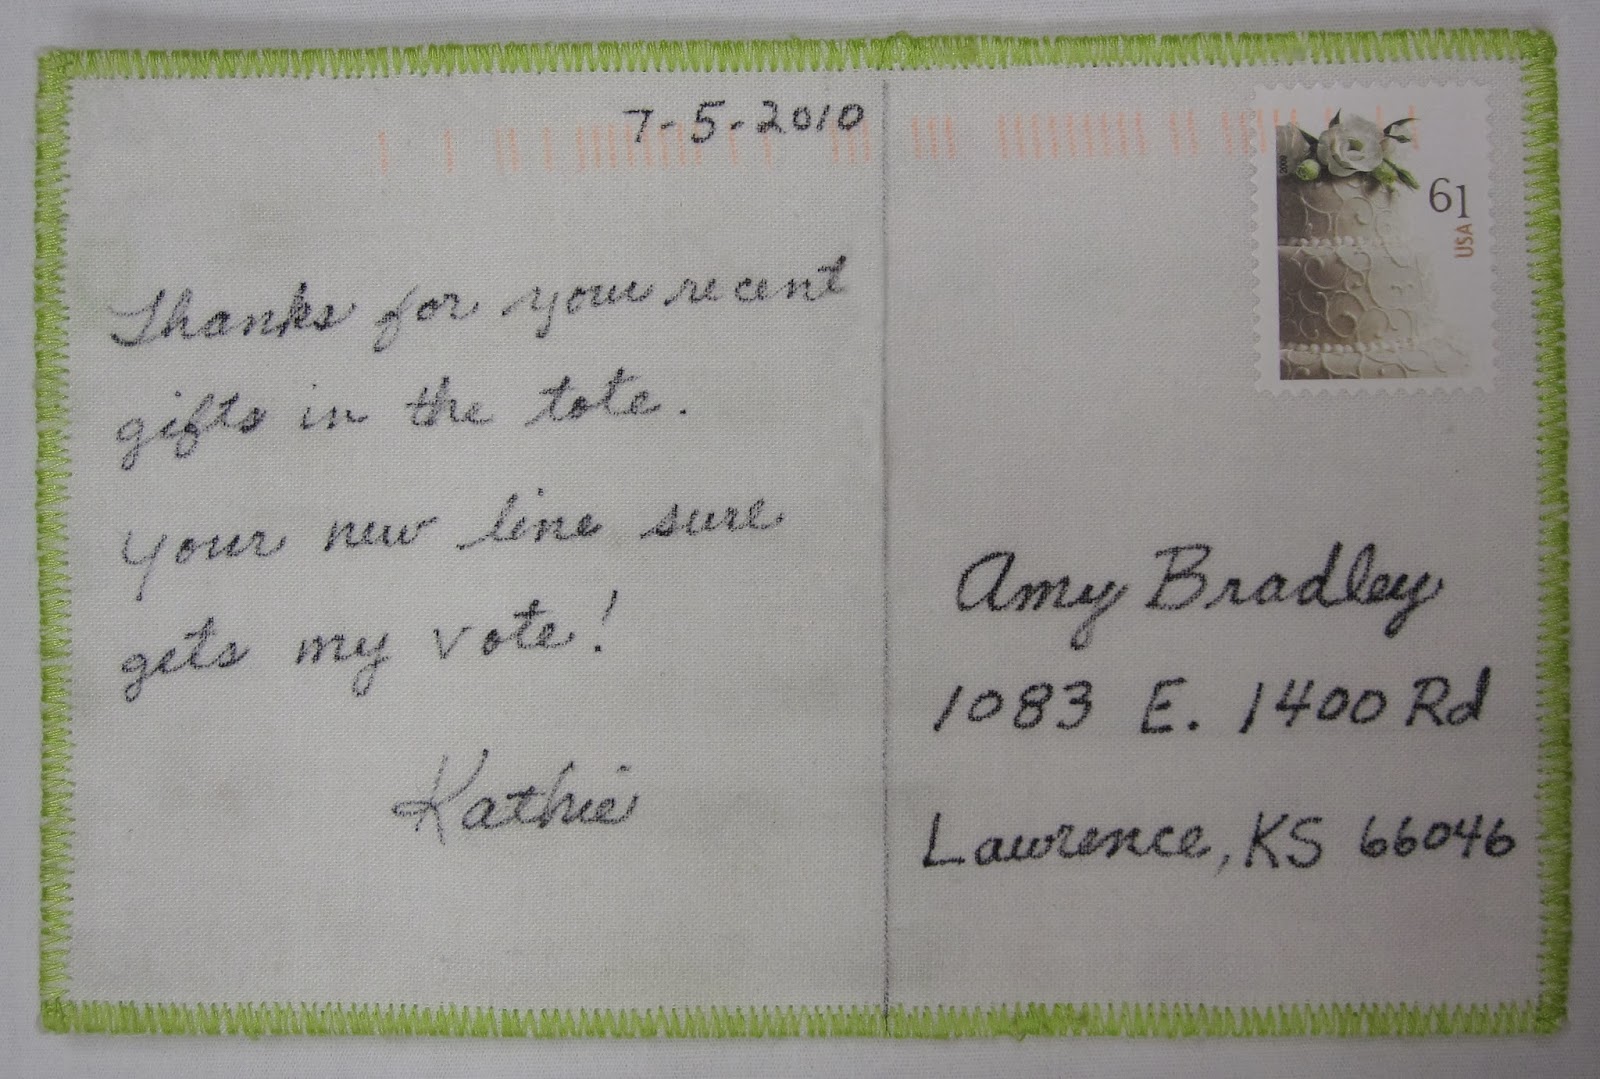 7-5-2010
Thanks for your recent
gifts in the tote.
Your new line sure
gets my vote!
Kathie
2009
61
USA
Amy Bradley
1083 E. 1400 Rd
Lawrence, KS 66046